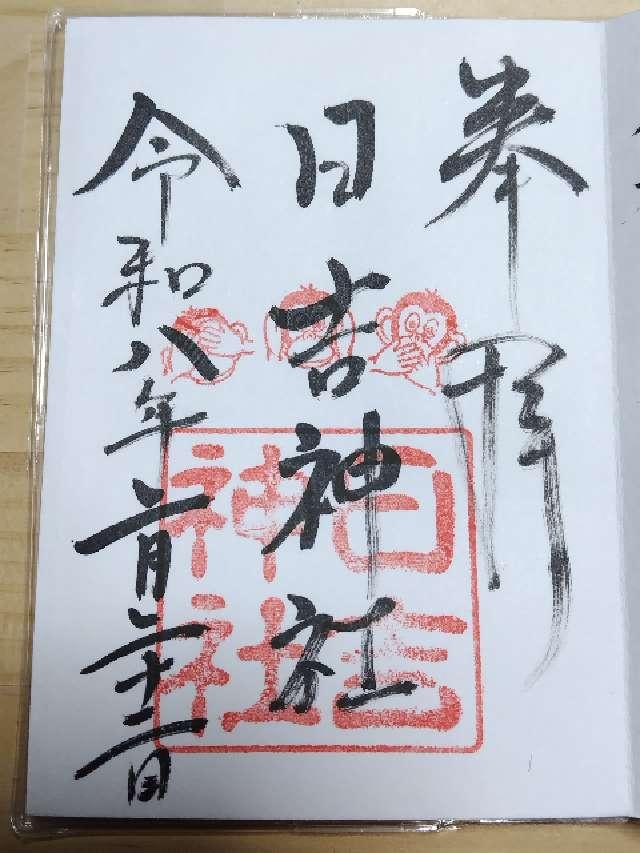 奉拝
日吉神社
令和八年二月二十二日
日吉
神社